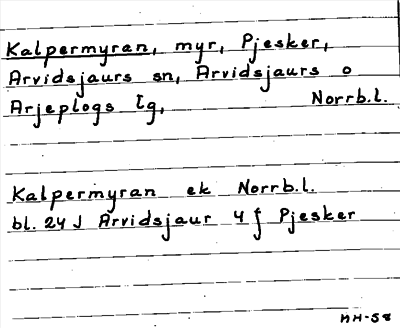 Kalpermyran, myr, Pjesker,
Arvidsjaurs sn, Arvidsjaurs o
Arjeplogs tg, Norrb.l.
Kalpermyran ek Norrb.l.
bl. 24 J Arvidsjaur 4 f Pjesker
HH-58